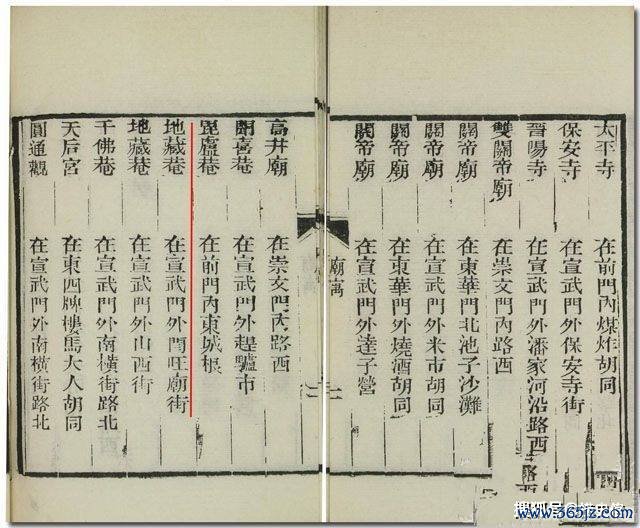 太平寺 在前門內煤炸胡同
保安寺 在宣武門外保安寺街
晉陽寺 在宣武門外潘家河沿路西
雙關帝廟 在崇文門內路西
關帝廟 在東華門北池子沙灘
關帝廟 在宣武門外米市胡同
關帝廟 在東華門外燒酒胡同
關帝廟 在宣武門外達子營
廟寓
高井廟 在崇文門內路西
聞喜菴 在宣武門外趕驢市
毘盧菴 在前門內東城根
地藏菴 在宣武門外閻旺廟街
地藏菴 在宣武門外山西街
千佛菴 在宣武門外南橫街路北
天后宮 在東四牌樓馬大人胡同
圓通觀 在宣武門外南橫街路北
搜狐号@
www.365jz.com